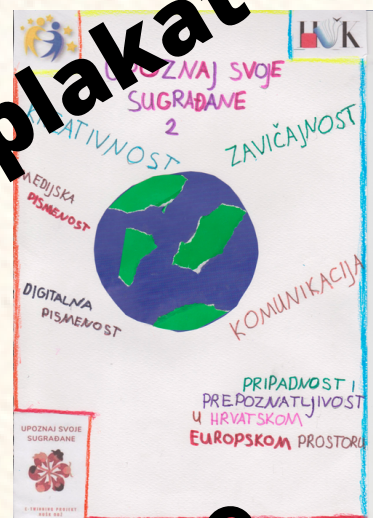 plakat
HUŠK
UPOZNAJ SVOJE
SUGRAĐANE
2
KREATIVNOST
ZAVIČAJNOST
MEDIJSKA
PISMENOST
DIGITALNA
PISMENOST
KOMUNIKACIJA
PRIPADNOST I
PREPOZNATLJIVOST
U HRVATSKOM
EUROPSKOM PROSTORU
UPOZNAJ SVOJE
SUGRAĐANE